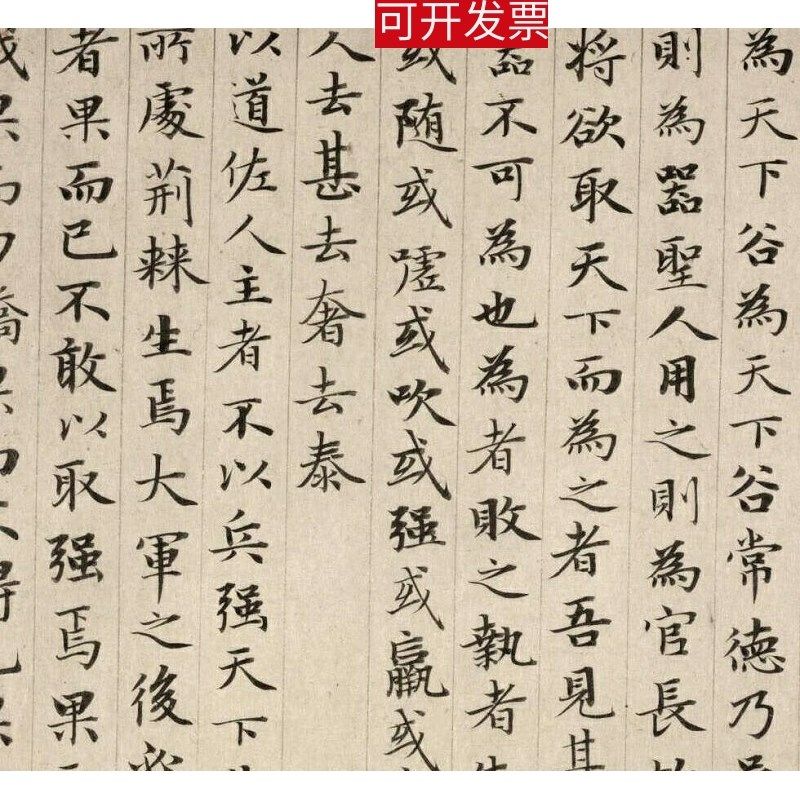 可开发票
為天下谷為天下谷常德乃
則為器聖人用之則為官長
將欲取天下而為之者吾見其
器不可為也為者敗之執者
或随或嘘或吹或强或羸或
人去甚去奢去泰
以道佐人主者不以兵强天下
所處荆棘生焉大軍之後
者果而已不敢以取强焉果